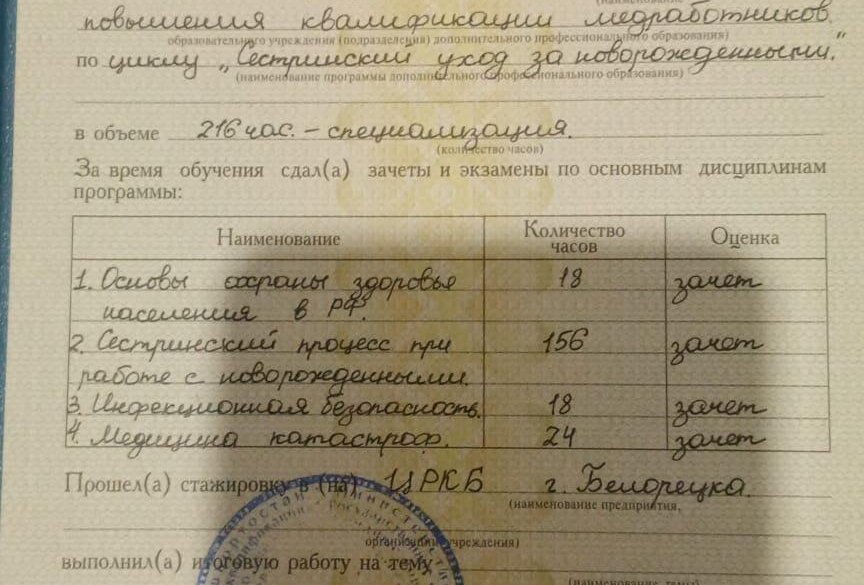 (наименование
повышения квалификации медработников
образовательного учреждения (подразделения) дополнительного профессионального образования)
по циклу „Сестринский уход за новорожденными."
(наименование программы дополнительного профессионального образования)
в объеме 216 час. – специализация.
(количество часов)
За время обучения сдал(а) зачеты и экзамены по основным дисциплинам
программы:
Наименование Количество часов Оценка
1. Основы охраны здоровья 18 зачет
населения в РФ.
2. Сестринский процесс при 156 зачет
работе с новорожденными.
3. Инфекционная безопасность. 18 зачет
4. Медицина катастроф. 24 зачет
Прошел(а) стажировку в (на) ЦРКБ г. Белорецка.
(наименование предприятия,
организации, учреждения)
выполнил(а) итоговую работу на тему